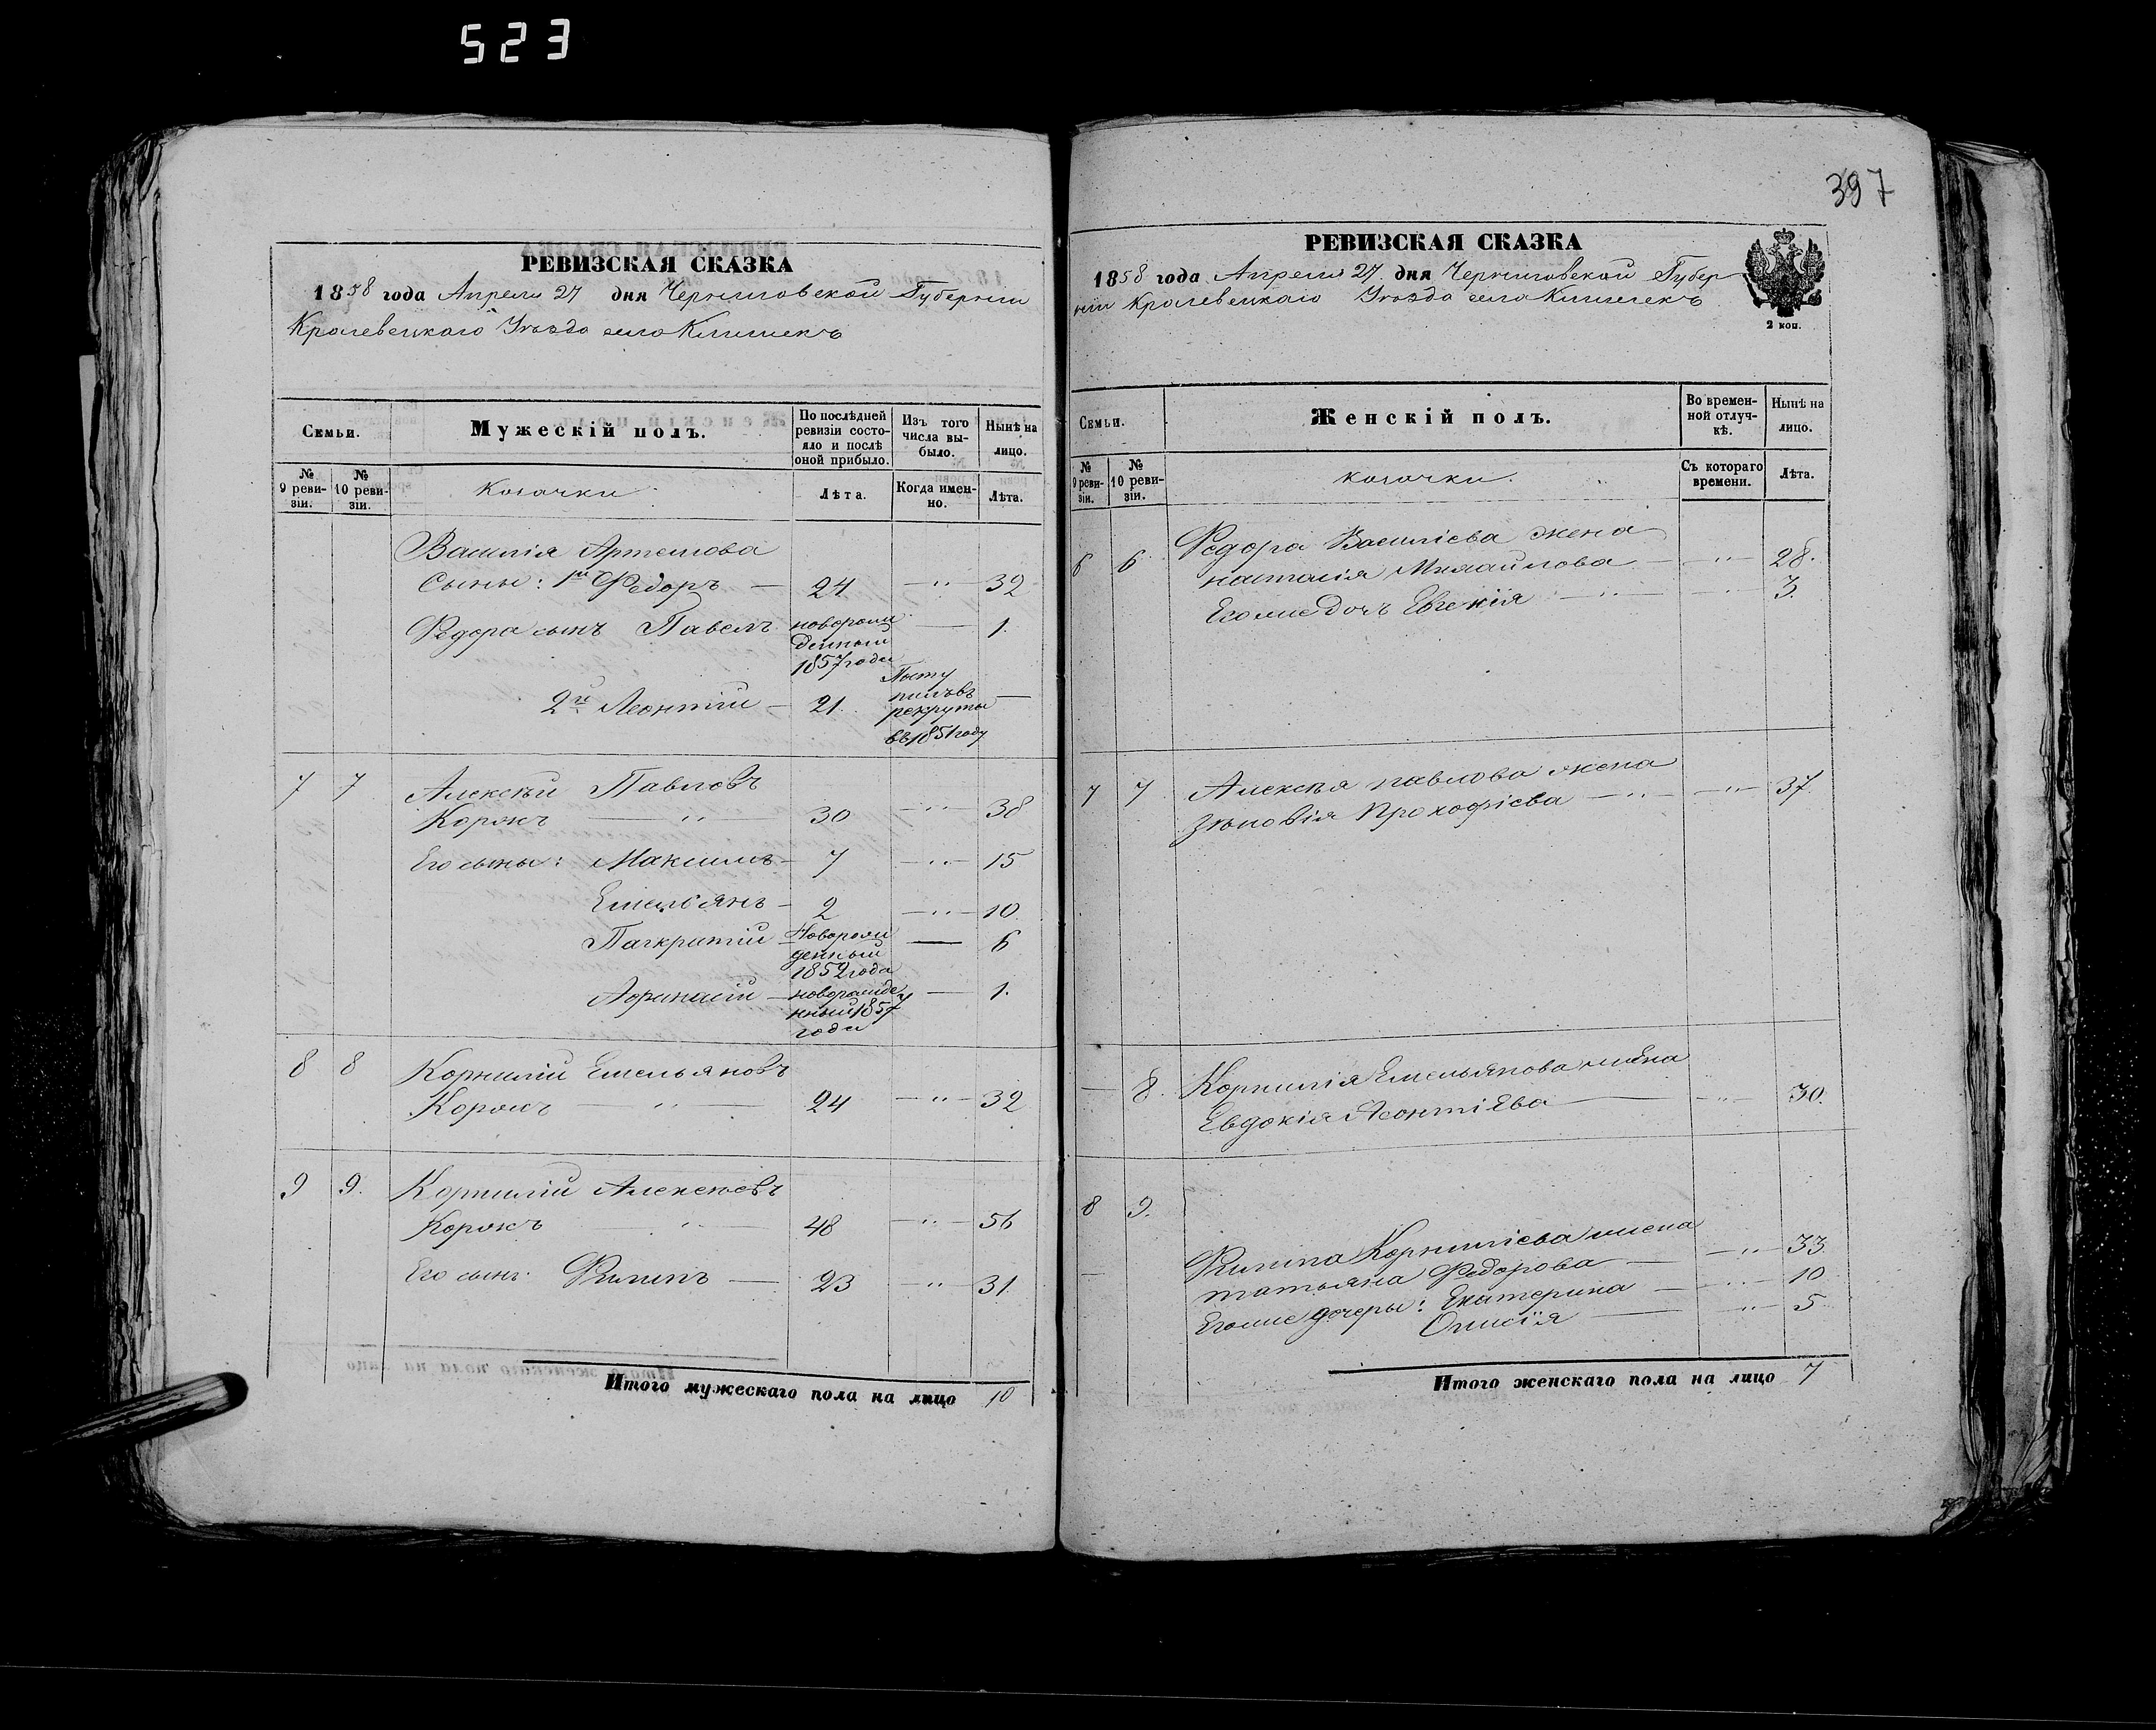 523
РЕВИЗСКАЯ СКАЗКА
1858 года Апреля 27 дня Черниговской Губернии
Кролевецкаго Уѣзда села Клишекъ
Семьи.
Мужескій полъ.
По послѣдней ревизіи состояло и послѣ оной прибыло.
Изъ того числа выбыло.
Нынѣ на лицо.
№ 9 ревизіи.
№ 10 ревизіи.
Козачки
Лѣта.
Когда именно.
Лѣта.
Василія Артемова
Сыны: 1й Федоръ — 24 —"— 32
Федора сынъ Павелъ новорож — 1.
денный
1857 года
2й Леонтій — 21. Посту —
пилъ въ
рекруты
въ 1851 году
7 7 Алексѣй Павловъ
Корж —"— 30 —"— 38
Его сыны: Максимъ — 7 —"— 15
Емельянъ — 2 —"— 10
Панкратій Новорож — 6
денный
1852 года
Афанасій — новорожде — 1.
нный 1857
года
8 8 Корнилій Емельяновъ
—"— 24 —"— 32
9 9. Корнилій Алексѣевъ
—"— 48 —"— 56
Его сынъ: Филипъ — 23 —"— 31.
Итого мужескаго пола на лицо 10
397
РЕВИЗСКАЯ СКАЗКА
1858 года Апреля 27 дня Черниговской Губер
ніи Кролевецкаго Уѣзда села Клишекъ
2 коп.
Семьи.
Женскій полъ.
Во временной отлучкѣ.
Нынѣ на лицо.
№ 9 ревизіи.
№ 10 ревизіи.
козачки.
Съ котораго времени.
Лѣта.
6 6 Федора Василіева жена
настасія Михайлова — —"— 28.
Его же дочь Евгенія —"— —"— 3.
7 7 Алексѣя павлова жена
Зѣновія Прокофіева —"— —"— 37.
— 8. Корнилія Емельянова жена
Евдокія Леонтіева — —"— 30.
8 9.
Филипа Корниліева жена
— татьяна Федорова — —"— 33
Его же дочеры: Екатерина — —"— 10
— —"— 5
Итого женскаго пола на лицо 7